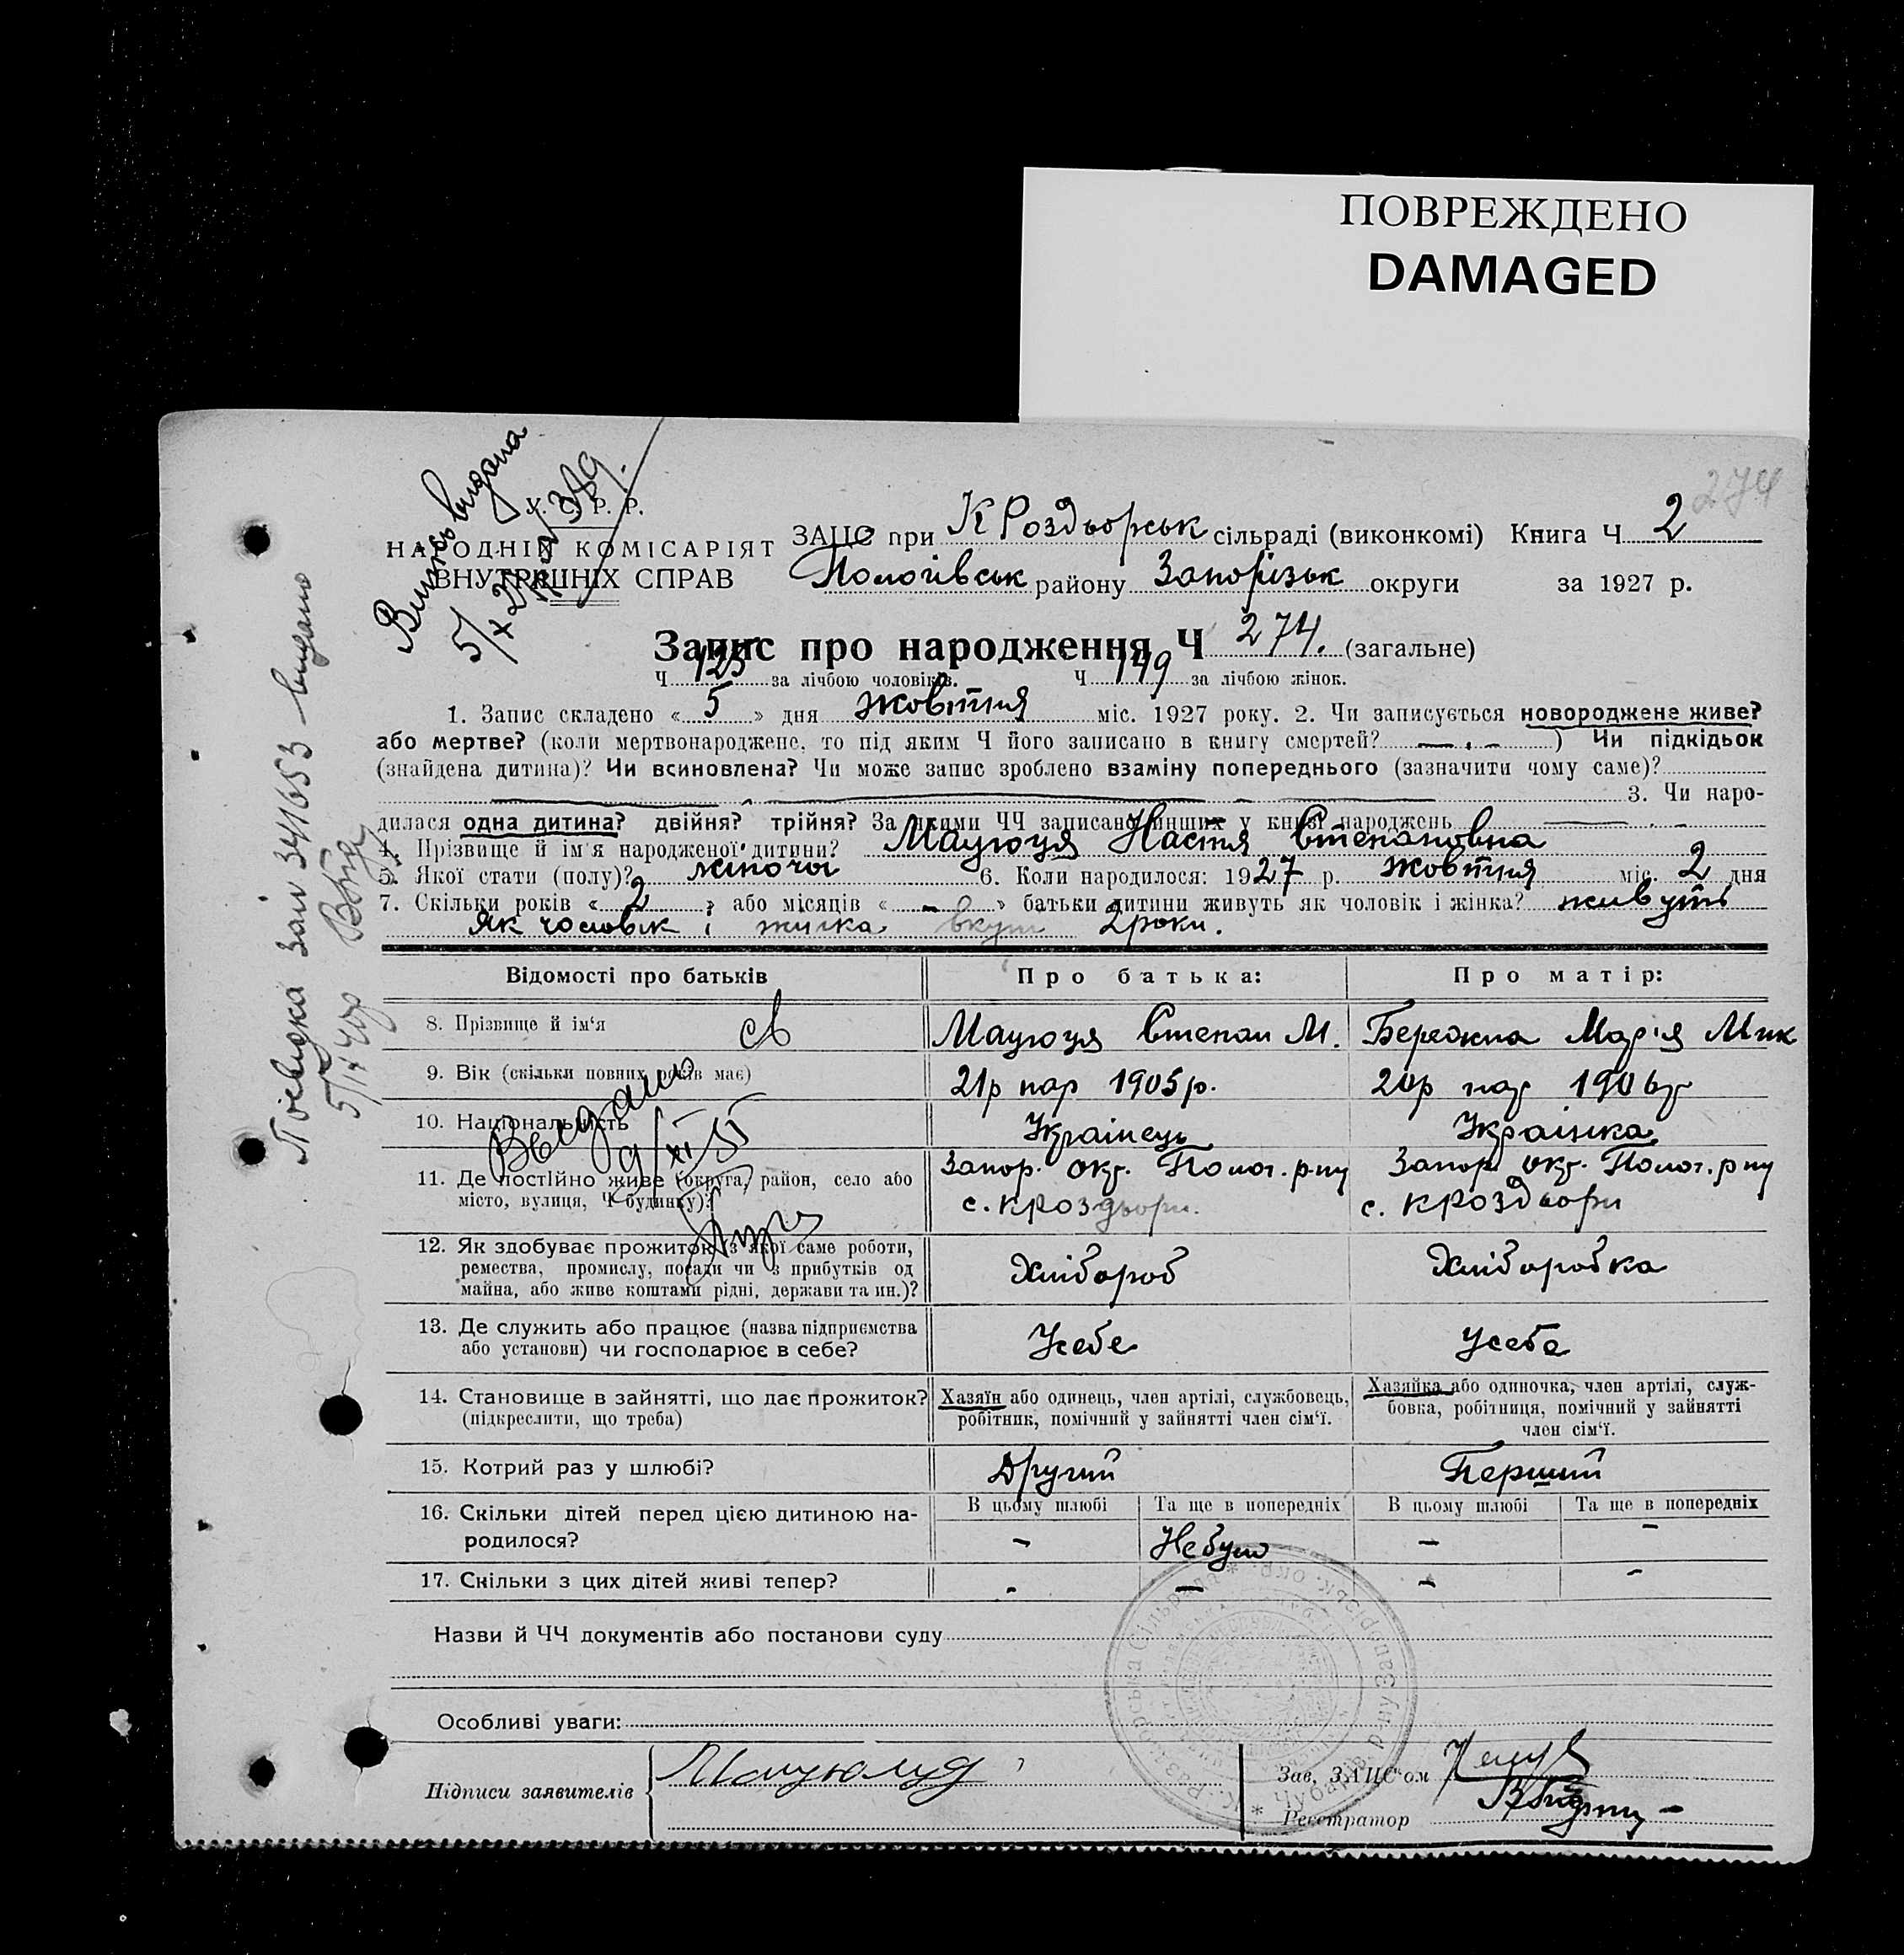 ПОВРЕЖДЕНО
DAMAGED
274
Випись видана
У. С. Р. Р.
НАРОДНІЙ КОМІСАРІЯТ
ВНУТРІШНІХ СПРАВ
ЗАПС при К Роздорськ сільраді (виконкомі) Книга Ч 2
Пологівськ району Запорізьк округи за 1927 р.
Запис про народження Ч 274. (загальне)
Ч 125 за лічбою чоловіків. Ч 149 за лічбою жінок.
1. Запис складено « 5 » дня жовтня міс. 1927 року. 2. Чи записується новороджене живе?
або мертве? (коли мертвонароджене, то під яким Ч його записано в книгу смертей? — . – ) Чи підкідьок
(знайдена дитина)? Чи всиновлена? Чи може запис зроблено взаміну попереднього (зазначити чому саме)?
3. Чи наро-
дилася одна дитина? двійня? трійня? За якими ЧЧ записано инших у книзі народжень —
4. Прізвище й ім'я народженої дитини? Мацюця Настя Степановна
5. Якої стати (полу)? жіночої 6. Коли народилося: 1927 р. жовтня міс. 2 дня
7. Скільки років « 2 » або місяців « - » батьки дитини живуть як чоловік і жінка? живуть
як чоловік і жінка вкупі 2 роки.
Відомості про батьків Про батька: Про матір:
8. Прізвище й ім'я Мацюця Степан М. Бережна Мар'я Мик
9. Вік (скільки повних років має) 21р нар 1905р. 20р нар 1906р
10. Національність Українець Українка
11. Де постійно живе (округа, район, село або Запор. окр. Полог. р-ну Запор. окр. Полог. р-ну
місто, вулиця, Ч будинку)? с. Кроздори. с. Кроздори
12. Як здобуває прожиток (з якої саме роботи,
ремества, промислу, посади чи з прибутків од Хлібороб Хліборобка
майна, або живе коштами рідні, держави та ин.)?
13. Де служить або працює (назва підприємства
або установи) чи господарює в себе? Усебе Усебе
14. Становище в зайнятті, що дає прожиток? Хазяїн або одинець, член артілі, службовець, Хазяйка або одиночка, член артілі, служ-
(підкреслити, що треба) робітник, помічний у зайнятті член сім'ї. бовка, робітниця, помічний у зайнятті
член сім'ї.
15. Котрий раз у шлюбі? Другий Перший
В цьому шлюбі Та ще в попередніх В цьому шлюбі Та ще в попередніх
16. Скільки дітей перед цією дитиною на-
родилося? – Небуло – –
17. Скільки з цих дітей живі тепер? - – – -
Назви й ЧЧ документів або постанови суду
Особливі уваги:
Підписи заявителів
Зав. ЗАПС'ом
Реєстратор
Посвідка Зал 341653 видано
Видано
9/XI